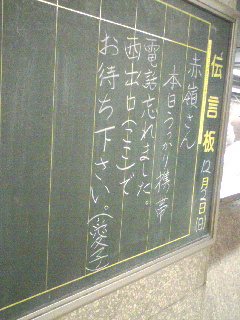 伝言板
12月2日(日)
赤嶺さん
本日うっかり携帯
電話忘れました。
西出口(ココ)で
お待ち下さい。(愛子)